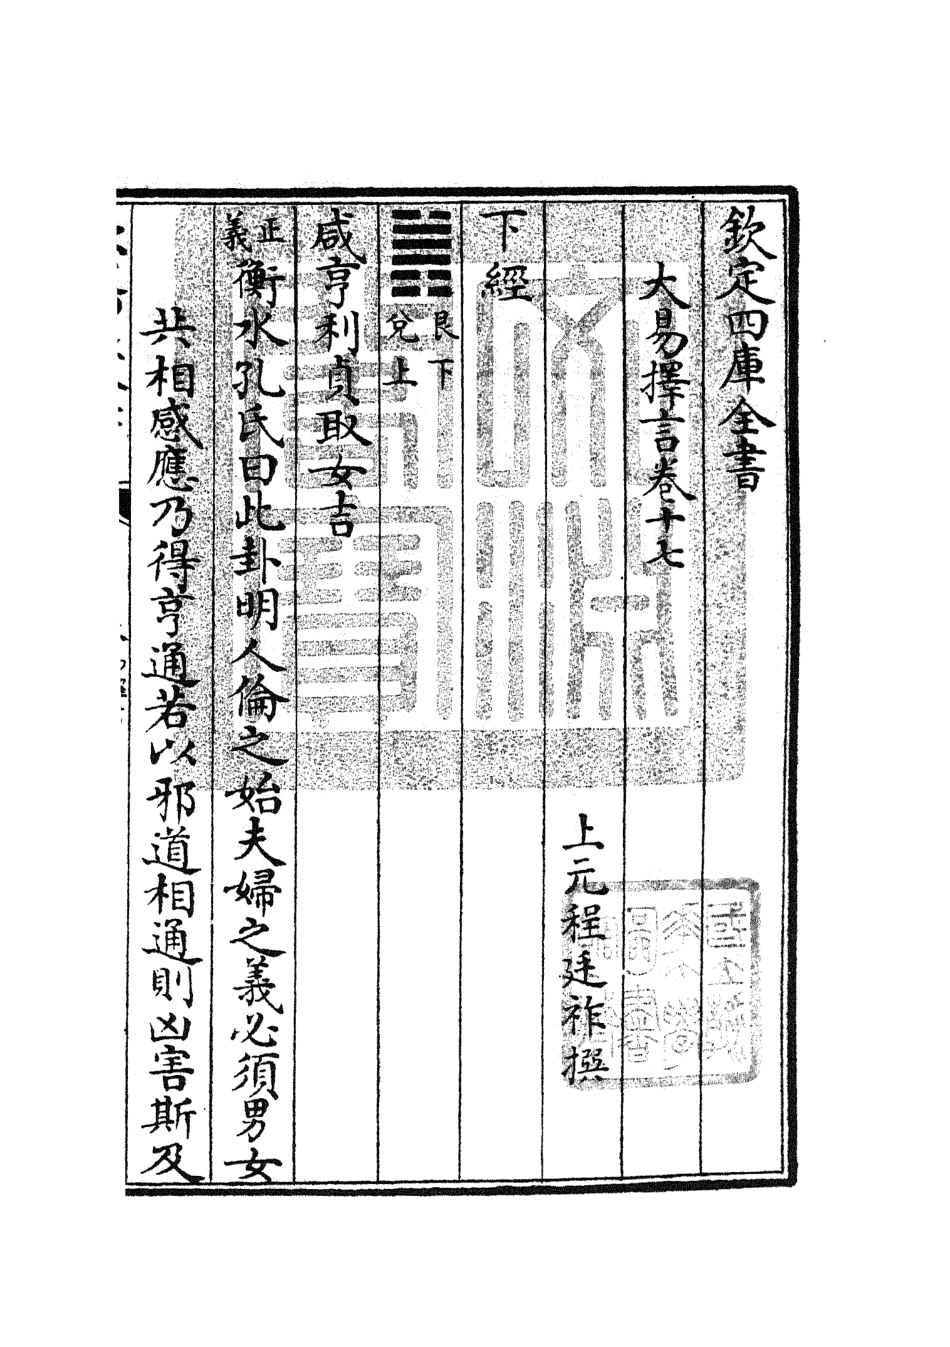 欽定四庫全書
大易擇言卷十七
上元程廷祚撰
下經
䷞艮下兌上
咸亨利貞取女吉
正義衡水孔氏曰此卦明人倫之始夫婦之義必須男女
共相感應乃得亨通若以邪道相通則凶害斯及